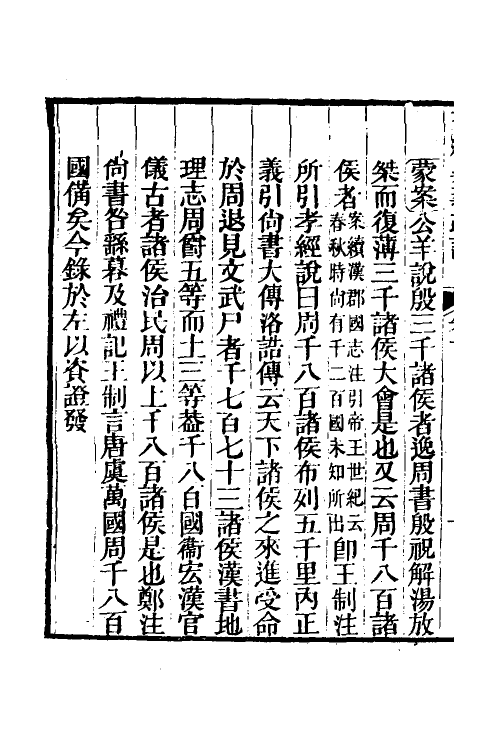 蒙案公羊說殷三千諸侯者逸周書殷祝解湯放
桀而復薄三千諸侯大會是也又云周千八百諸
侯者案續漢郡國志注引帝王世紀云春秋時尚有千二百國未知所出卽王制注
所引孝經說曰周千八百諸侯布列五千里內正
義引尚書大傳洛誥傳云天下諸侯之來進受命
於周退見文武尸者千七百七十三諸侯漢書地
理志周爵五等而土三等葢千八百國衞宏漢官
儀古者諸侯治民周以上千八百諸侯是也鄭注
尚書咎繇暮及禮記王制言唐虞萬國周千八百
國備矣今錄於左以資證發